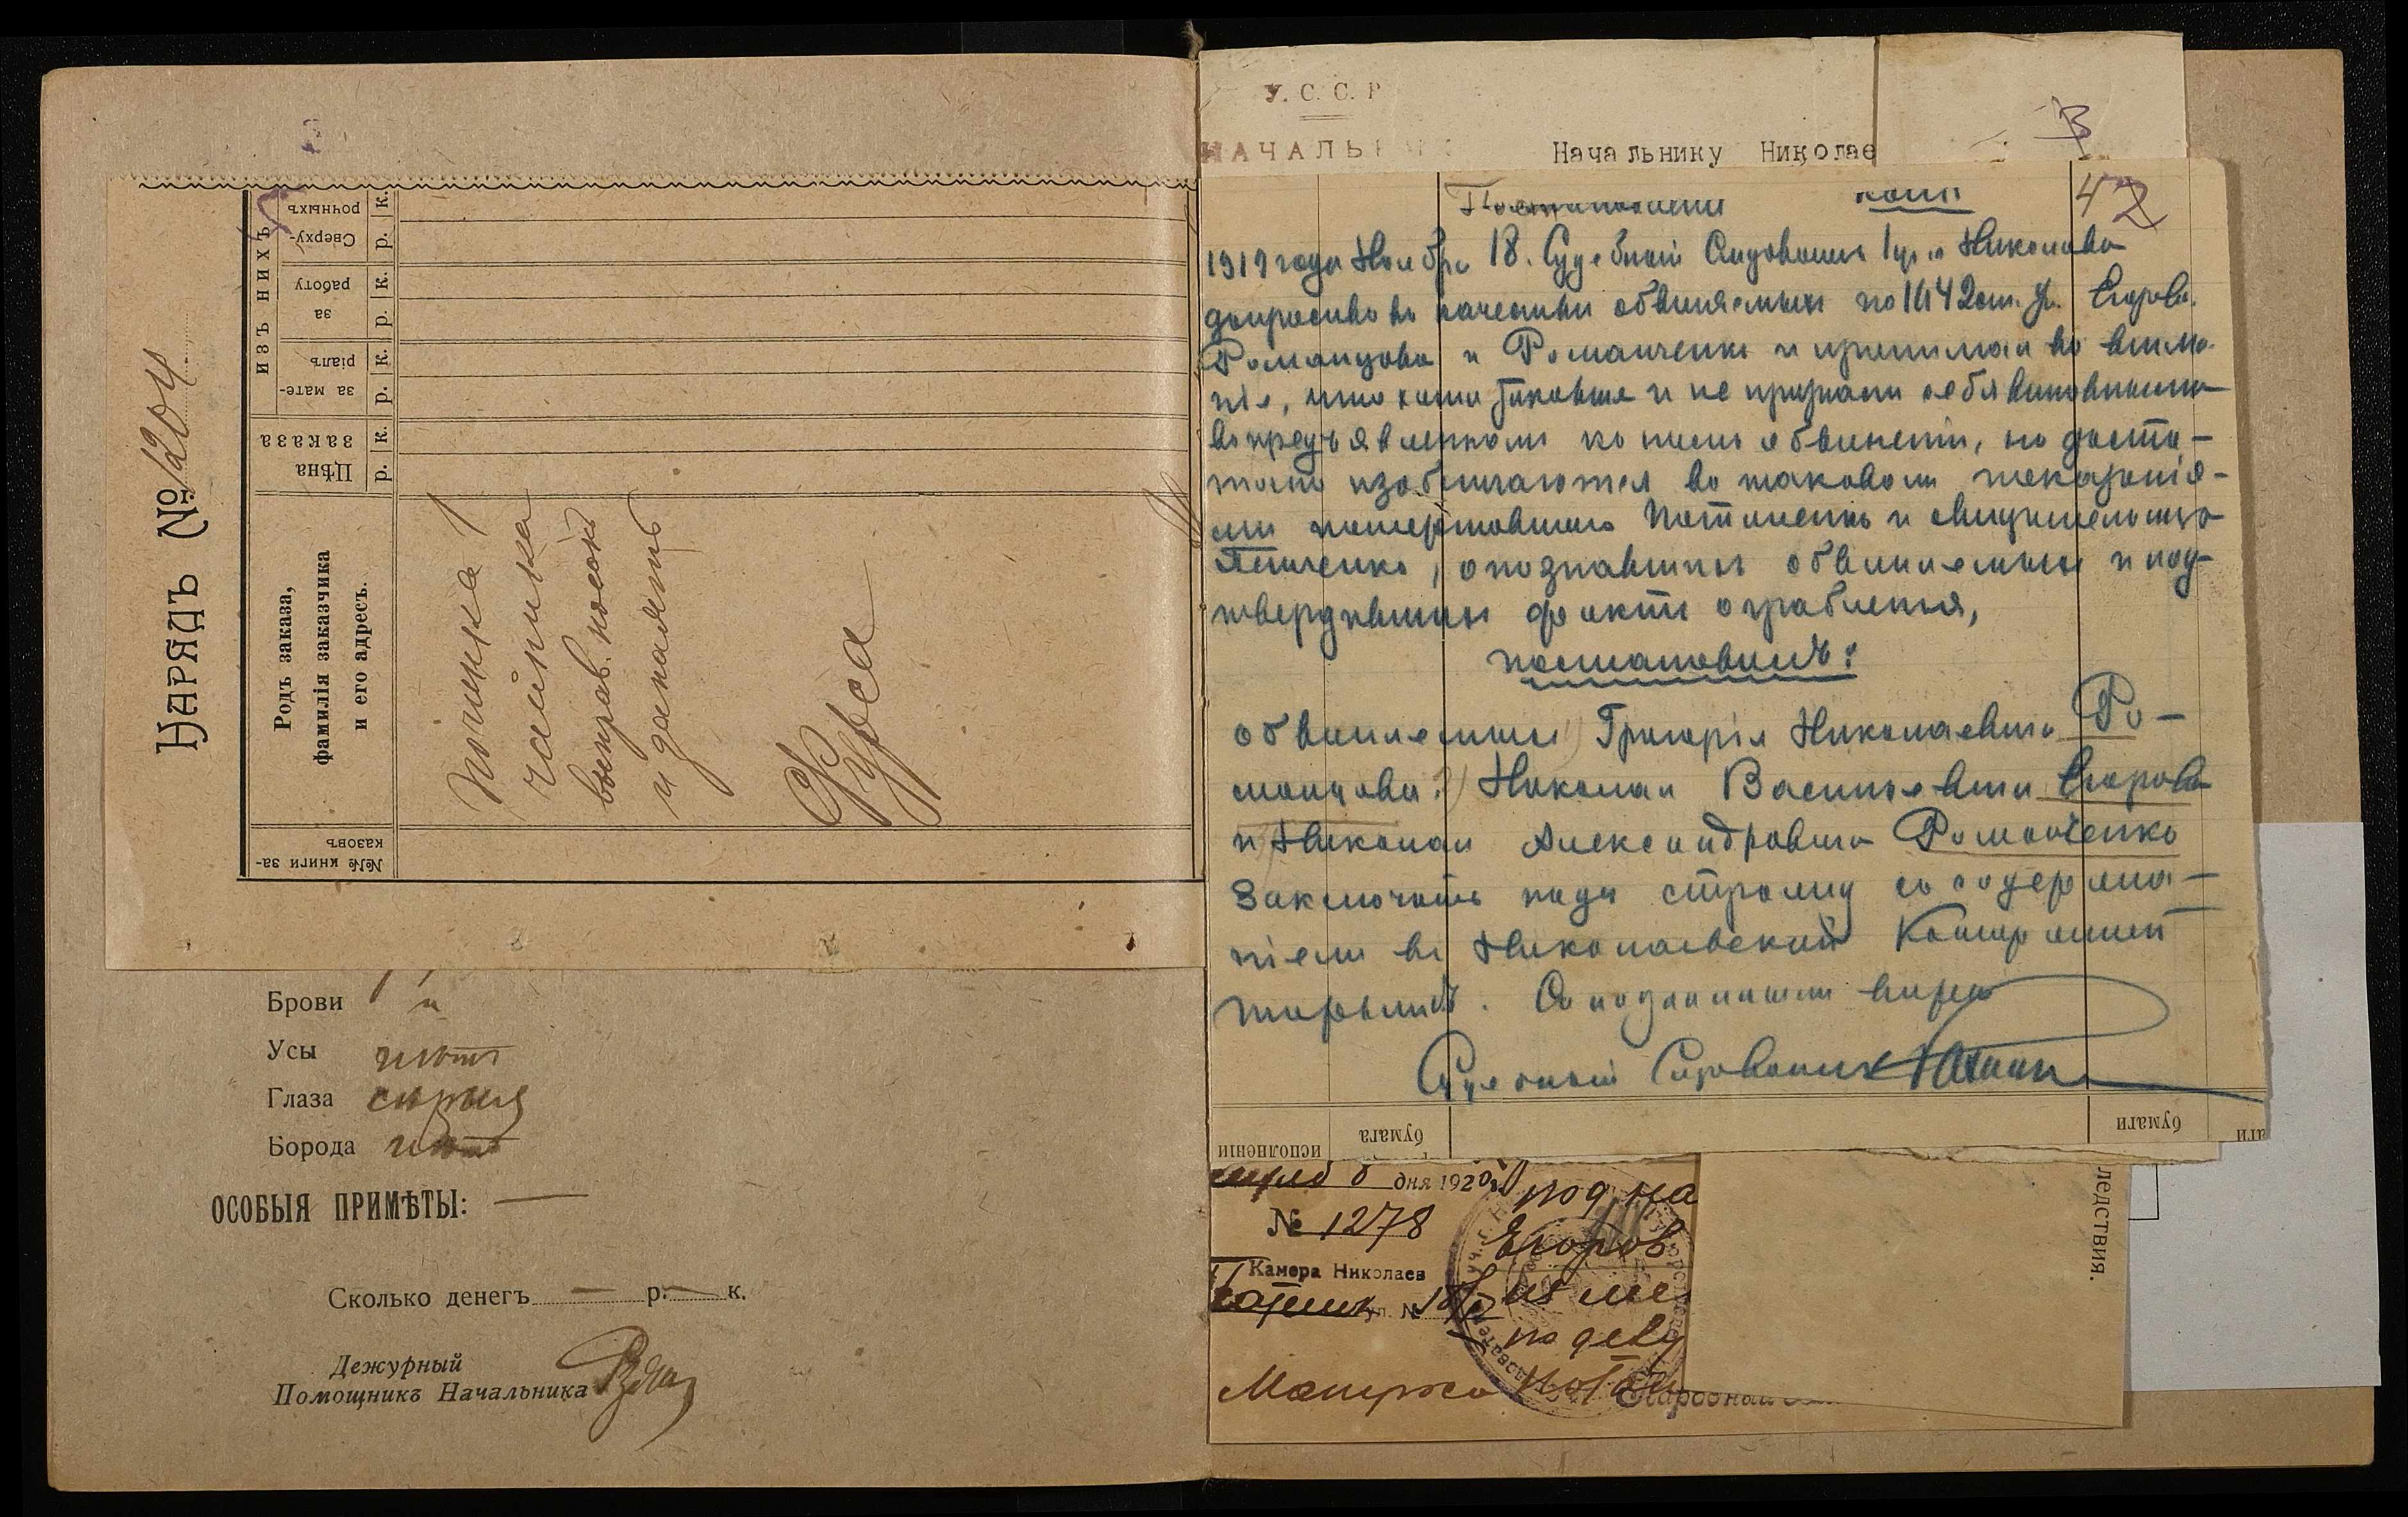 НАРЯДЪ № 1204
№№ книги заказовъ
Родъ заказа, фамилія заказчика и его адресъ.
Цѣна заказа
р. к.
ИЗЪ НИХЪ
за матеріалъ
р. к.
за работу
р. к.
Сверхурочныхъ
р. к.
Починка 1
чайника
выправ. носокъ
и запаять
Брови
Усы нѣтъ
Глаза сѣрые
Борода нѣтъ
ОСОБЫЯ ПРИМѢТЫ: —
Сколько денегъ — р. — к.
Дежурный
Помощникъ Начальника
У. С. С. Р
НАЧАЛЬНИК
Начальнику Николае
3
42
Постановленіе копія
1919 года Ноября 18. Судебный Слѣдователь 1 уч. г. Николаева
допросивъ въ качествѣ обвиняемыхъ по 1642 ст. Ул. Егорова,
Романцова и Романченко и принимая во внима-
ніе, что хотя таковые и не признали себя виновными
въ предъявленномъ къ нимъ обвиненіи, но доста-
точно изобличаются въ таковомъ показанія-
ми потерпѣвшаго и свидѣтельницы
опознавшихъ обвиняемыхъ и под-
твердившихъ фактъ ограбленія,
постановилъ:
обвиняемыхъ 1) Григорія Николаевича Ро-
манцова 2) Николая Васильевича Егорова
и Николая Александровича Романченко
Заключить подъ стражу съ содержа-
ніемъ въ Николаевской Каторжной
тюрьмѣ. Съ подлиннымъ вѣрно
Судебный Слѣдователь
исполненіи
бумага
бумаги
дня 1920 г.
№ 1278
Камера Николаев
ул. №
под на
Егоров
из ме
по делу
ледствия.